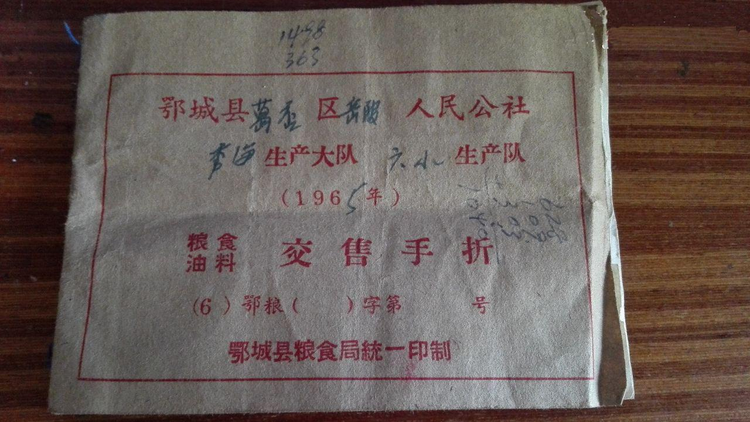 1498
363
鄂城县葛店区岳陂人民公社
李海生产大队 六小生产队
(1965年)
粮食
油料 交售手折
(6) 鄂粮( )字第 号
鄂城县粮食局統一印制